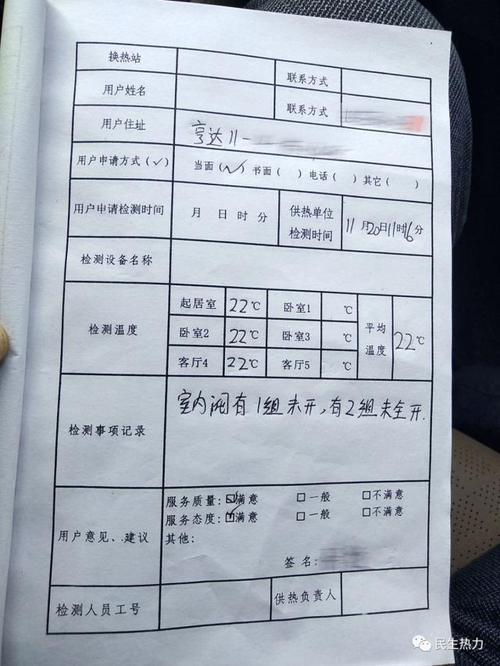 换热站 联系方式
用户姓名 联系方式
用户住址 亨达11-
用户申请方式(✓) 当面(✓)书面( )电话( )其它( )
用户申请检测时间 月 日 时 分 供热单位检测时间 11月20日11时16分
检测设备名称
检测温度 起居室 22℃ 卧室1 ℃ 平均温度 22℃
卧室2 22℃ 卧室3 ℃
客厅4 22℃ 客厅5 ℃
检测事项记录 室内阀有1组未开,有2组未全开.
用户意见、建议 服务质量:☑满意 □一般 □不满意
服务态度:☑满意 □一般 □不满意
其他:
签名:
检测人员工号 供热负责人
民生热力